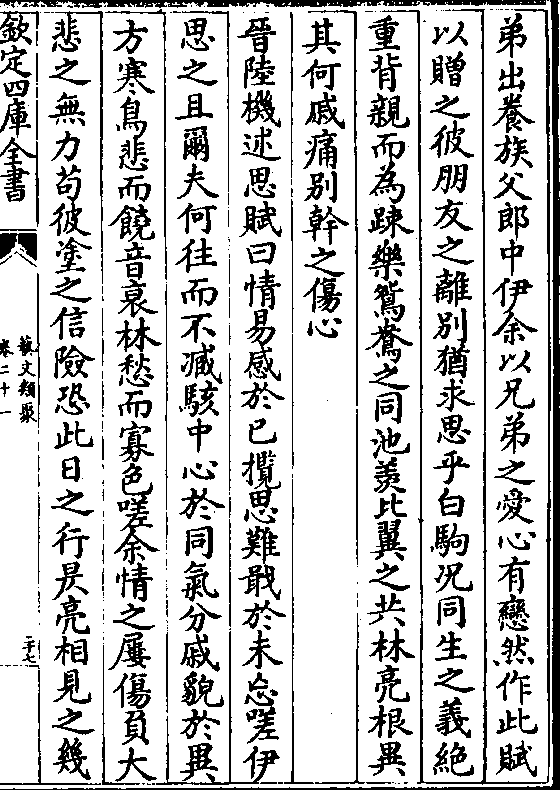 弟出養族父郎中伊余以兄弟之愛心有戀然作此賦
以贈之彼朋友之離別猶求思乎白駒况同生之義絶
重背親而為疎樂鴛鴦之同池羡比翼之共林亮根異
其何戚痛別幹之傷心
晉陸機述思賦曰情易感於已攬思難戢於未忘嗟伊
思之且爾夫何往而不臧駭中心於同氣分戚貌於異
方寒鳥悲而饒音衰林愁而寡色嗟余情之屢傷負大
悲之無力苟彼塗之信險恐此日之行昃亮相見之幾
欽定四庫全書
藝文類聚
卷二十一
二十七